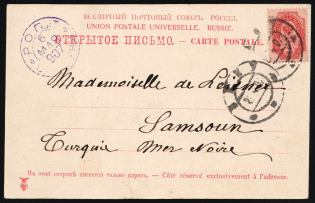 ВСЕМІРНЫЙ ПОЧТОВЫЙ СОЮЗЪ. РОССІЯ.
UNION POSTALE UNIVERSELLE. RUSSIE.
ОТКРЫТОЕ ПИСЬМО. — CARTE POSTALE.
Mademoiselle de
Samsoun
Turquie Mer Noire
На этой сторонѣ пишется только адресъ. — Côté réservé exclusivement à l'adresse.